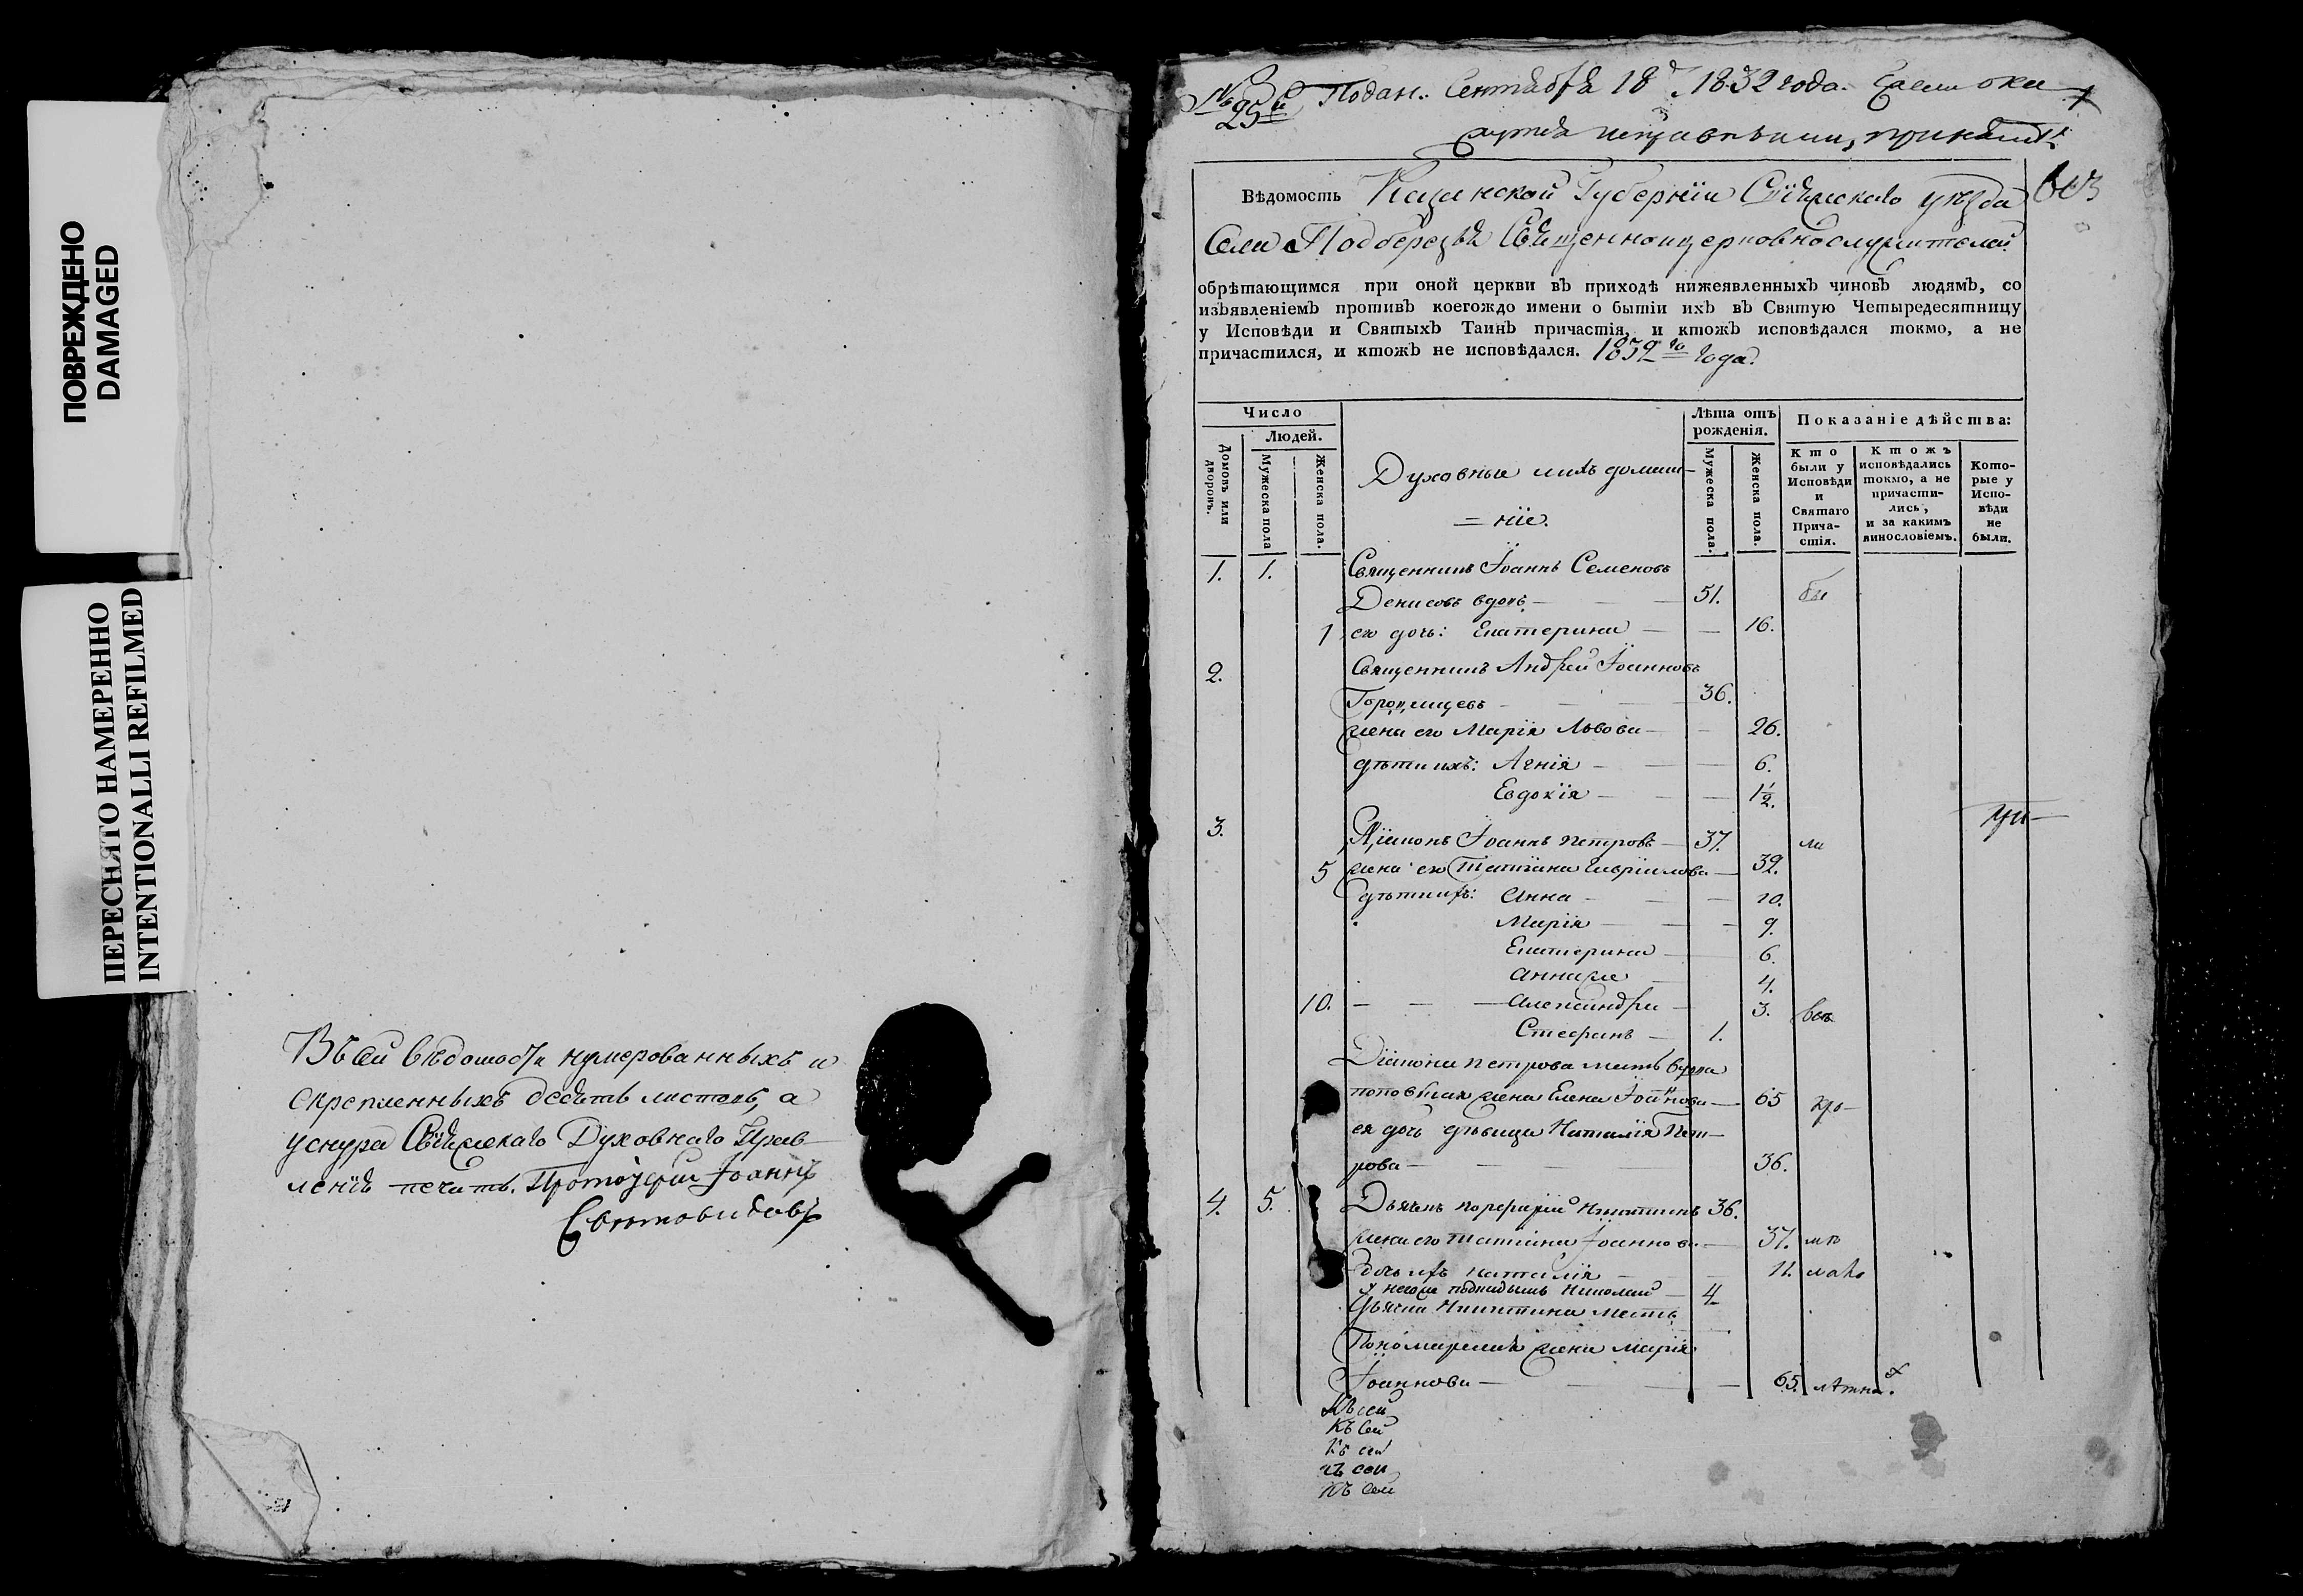 ПОВРЕЖДЕНО
DAMAGED
ПЕРЕСНЯТО НАМЕРЕННО
INTENTIONALLI REFILMED
Въ сей ведомости нумерованныхъ и
скрепленныхъ десять листовъ, а
у снура Свіяжскаго Духовнаго Прав-
ленія печать. Протоіерей Іоаннъ
Святовидовъ
№ 25й Подан. Сентября 18 д. 1832 года. Ежели ока
жутся исправными, принять.
Вѣдомость Казанской Губерніи Свіяжскаго уѣзда
Села Подберезья Священноцерковнослужителей
обрѣтающимся при оной церкви въ приходѣ нижеявленныхъ чиновъ людямъ, со
изъявленіемъ противъ коегождо имени о бытіи ихъ въ Святую Четыредесятницу
у Исповѣди и Святыхъ Таинъ причастія, и ктожъ исповѣдался токмо, а не
причастился, и ктожъ не исповѣдался. 1832го года.
Число
Людей.
Домовъ или дворовъ.
Мужеска пола
Женска пола.
Духовные ихъ домаш-
=ніе.
Лѣта отъ
рожденія.
Мужеска пола.
Женска пола.
Показаніе дѣйства:
Кто
были у
Исповѣди
и
Святаго
Прича-
стія.
Ктожъ
исповѣдались
токмо, а не
причасти-
лись,
и за какимъ
винословіемъ.
Кото-
рые у
Испо-
вѣди
не
были.
1. 1. Священникъ Іоаннъ Семеновъ
Денисовъ вдовъ — 51. бы
1 его дочь: Екатерина — 16.
2. Священникъ Андрей Іоанновъ
Горонищевъ 36.
жена его Марія Львова — 26.
дѣти ихъ: Агнія — 6.
Евдокія — 1½.
3. Діаконъ Іоаннъ Петровъ — 37. ли
5 жена его Татіана Гавріилова — 39.
дѣти ихъ: Анна — 10.
Марія — 9.
Екатерина — 6.
4.
10. — Александра — 3. всѣ
Стефанъ — 1.
Діакона Петрова мать вдова
поповская жена Елена Іоаннова — 65 кро-
ея дочь дѣвица Наталія Пет-
рова — 36.
4. 5. Дьячекъ Порфирій Никитинъ 36.
жена его Татіана Іоаннова — 37. мѣ
Дочь ихъ Наталія 11. мало
У него же подкидышъ Николай — 4
Дьячка Никитина мать
Пономарская жена Марія
Іоаннова — 65. лѣтна.
Къ сей
Къ сей
Къ сей
Къ сей
Къ сей